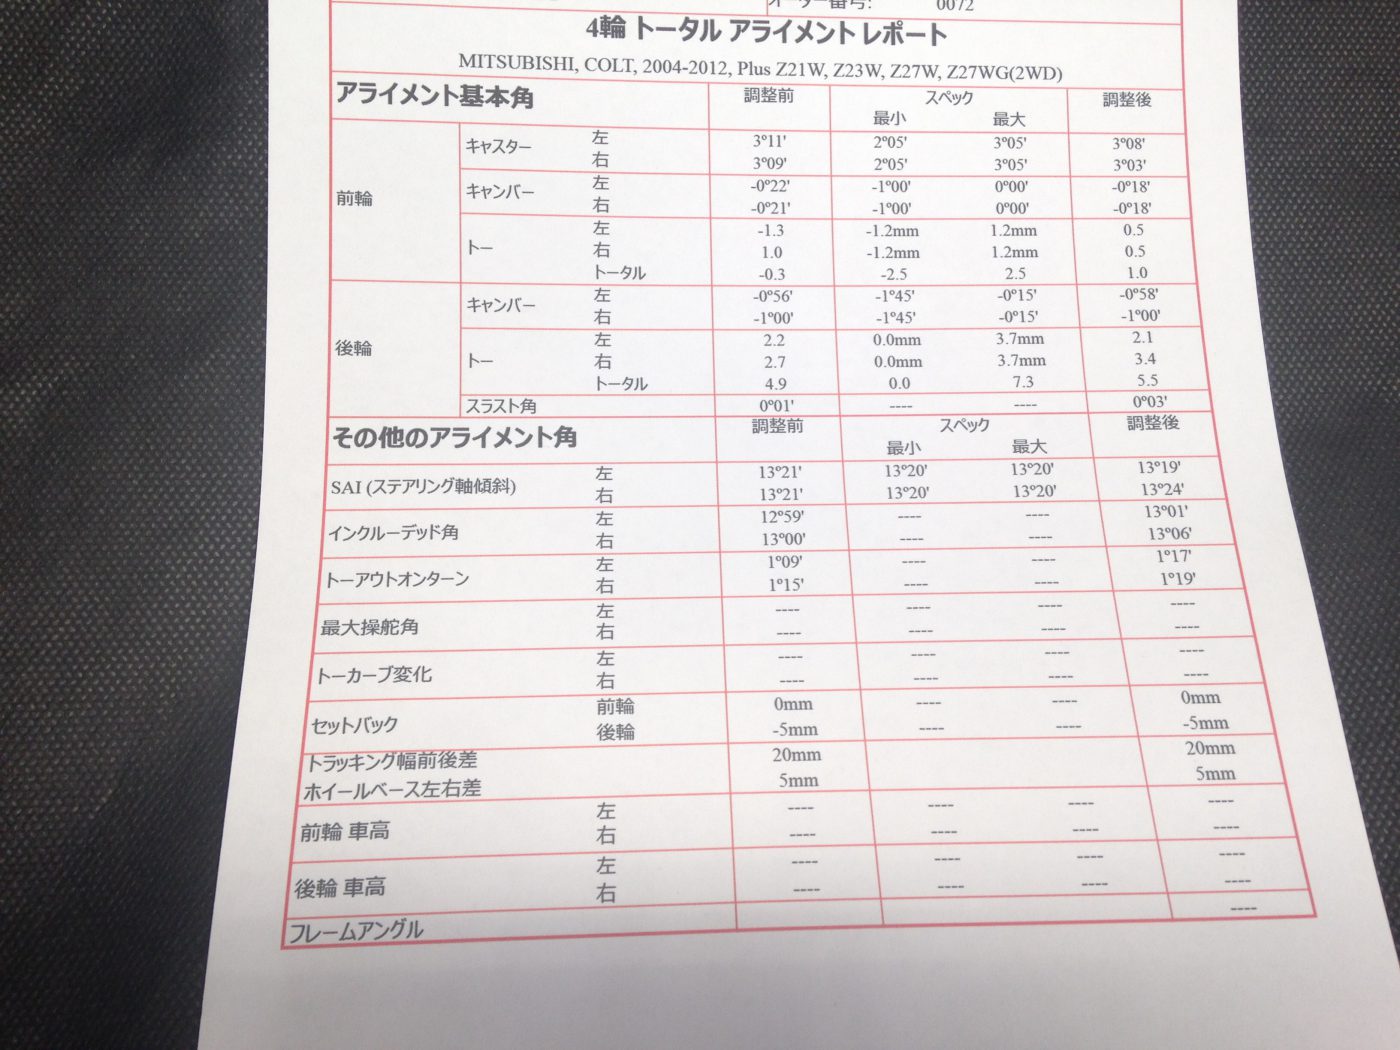 オーダー番号: 0072
4輪 トータル アライメント レポート
MITSUBISHI, COLT, 2004-2012, Plus Z21W, Z23W, Z27W, Z27WG(2WD)
アライメント基本角 調整前 スペック 調整後
最小 最大
前輪 キャスター 左 3º11' 2º05' 3º05' 3º08'
右 3º09' 2º05' 3º05' 3º03'
キャンバー 左 -0º22' -1º00' 0º00' -0º18'
右 -0º21' -1º00' 0º00' -0º18'
トー 左 -1.3 -1.2mm 1.2mm 0.5
右 1.0 -1.2mm 1.2mm 0.5
トータル -0.3 -2.5 2.5 1.0
後輪 キャンバー 左 -0º56' -1º45' -0º15' -0º58'
右 -1º00' -1º45' -0º15' -1º00'
トー 左 2.2 0.0mm 3.7mm 2.1
右 2.7 0.0mm 3.7mm 3.4
トータル 4.9 0.0 7.3 5.5
スラスト角 0º01' ---- ---- 0º03'
その他のアライメント角 調整前 スペック 調整後
最小 最大
SAI (ステアリング軸傾斜) 左 13º21' 13º20' 13º20' 13º19'
右 13º21' 13º20' 13º20' 13º24'
インクルーデッド角 左 12º59' ---- ---- 13º01'
右 13º00' ---- ---- 13º06'
トーアウトオンターン 左 1º09' ---- ---- 1º17'
右 1º15' ---- ---- 1º19'
最大操舵角 左 ---- ---- ---- ----
右 ---- ---- ---- ----
トーカーブ変化 左 ---- ---- ---- ----
右 ---- ---- ---- ----
セットバック 前輪 0mm ---- ---- 0mm
後輪 -5mm ---- ---- -5mm
トラッキング幅前後差 20mm 20mm
ホイールベース左右差 5mm 5mm
前輪 車高 左 ---- ---- ---- ----
右 ---- ---- ---- ----
後輪 車高 左 ---- ---- ---- ----
右 ---- ---- ---- ----
フレームアングル ----